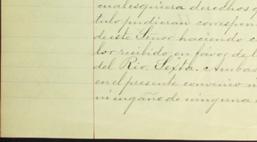 cualesquiera derechos q
tulo pudieran correspon
de este Señor haciendo c
lor recibido en favor del
del Rio. Sexta. Ambas
en el presente convenio n
ni engaño de ninguna